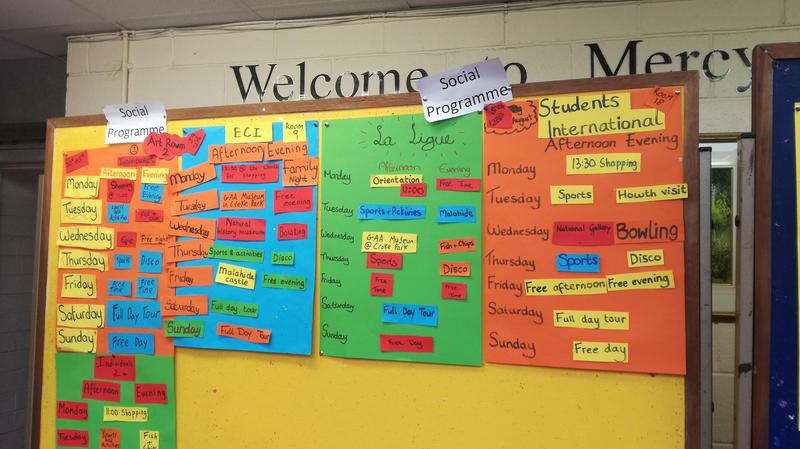 Welcome to Mercy
Social
Programme
Social
Programme
Art Room
Individuals
Afternoon Evening
Monday Shopping Free Evening
Tuesday
Wednesday Free night
Thursday Sports Disco
Friday Free Time Free Time
Saturday Full Day Tour
Sunday Free Day
Individuals
2
Afternoon Evening
Monday 11:00 Shopping
Tuesday Sports and Activities Fish + Chips
ECI Room 9
Afternoon Evening
Monday for Shopping Family Night
Tuesday GAA Museum in Croke Park Free evening
Wednesday Natural history museum Bowling
Thursday Sports & activities Disco
Friday Malahide castle Free evening
Saturday Full day tour
Sunday Full Day Tour
La Ligue
Afternoon Evening
Monday Orientation 12:00 Free Time
Tuesday Sports + Activies Malahide
Wednesday GAA Museum @ Croke Park Fish + Chips
Thursday Sports Disco
Friday Free Time Free Time
Saturday Full Day Tour
Sunday Free Day
August
Room 18
Students
International
Afternoon Evening
Monday 13:30 Shopping
Tuesday Sports Howth visit
Wednesday National Gallery Bowling
Thursday Sports Disco
Friday Free afternoon Free evening
Saturday Full day tour
Sunday Free day